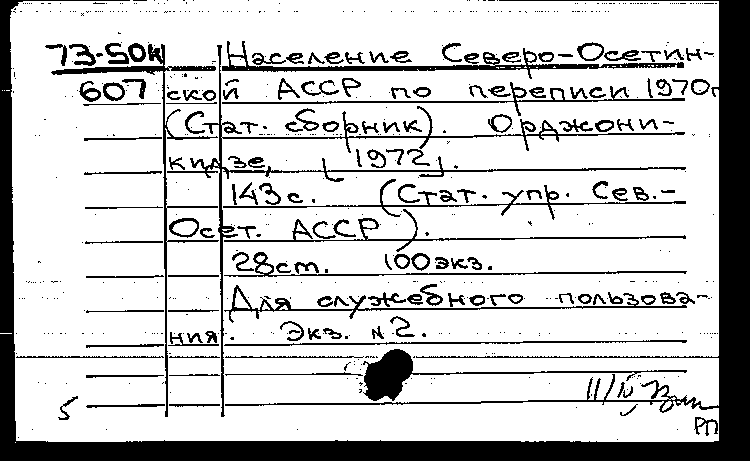 73-50к Население Северо-Осетин-
607 ской АССР по переписи 1970г
(Стат. сборник). Орджони-
кидзе, [1972].
143 с. (Стат. упр. Сев.-
Осет. АССР).
28см. 100экз.
Для служебного пользова-
ния. Экз. N 2.
5
РП